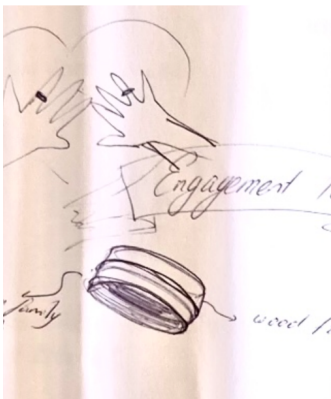 Engagement
family
wood